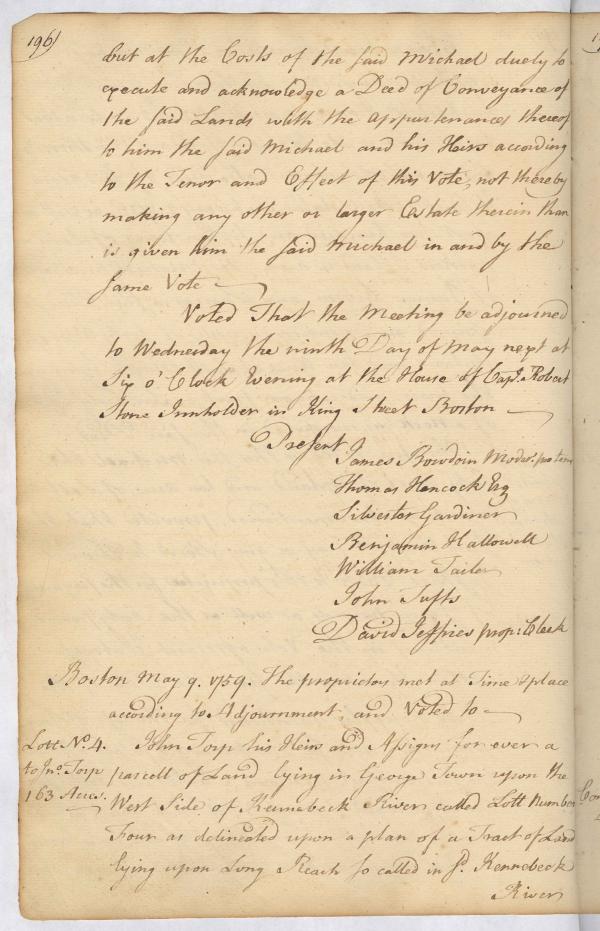 196
but at the Costs of the said Michael duely to
execute and acknowledge a Deed of Conveyance of
the said Lands with the appurtenances thereof
to him the said Michael and his Heirs according
to the Tenor and Effect of this Vote, not thereby
making any other or larger Estate therein than
is given him the said Michael in and by the
same Vote
Voted That the Meeting be adjourned
to Wednesday the ninth Day of May next at
Six o'Clock Evening at the House of Capt. Robert
Stone Innholder in King Street Boston
Present
James Bowdoin Moder. pro tem
Thomas Hancock Esq
Silvester Gardiner
Benjamin Hallowell
William Tailer
John Tufts
David Jeffries prop: Clerk
Boston May 9. 1759. The propietors met at Time & place
according to Adjournment, and Voted to
Lott No. 4.
to Jno. Torp
163 Acres.
John Torp his Heirs and Assigns for ever a
parcell of Land lying in George Town upon the
West Side of Kennebeck River called Lott Number
Four as delineated upon a plan of a Tract of Land
lying upon Long Reach so called in sd. Kennebeck
River